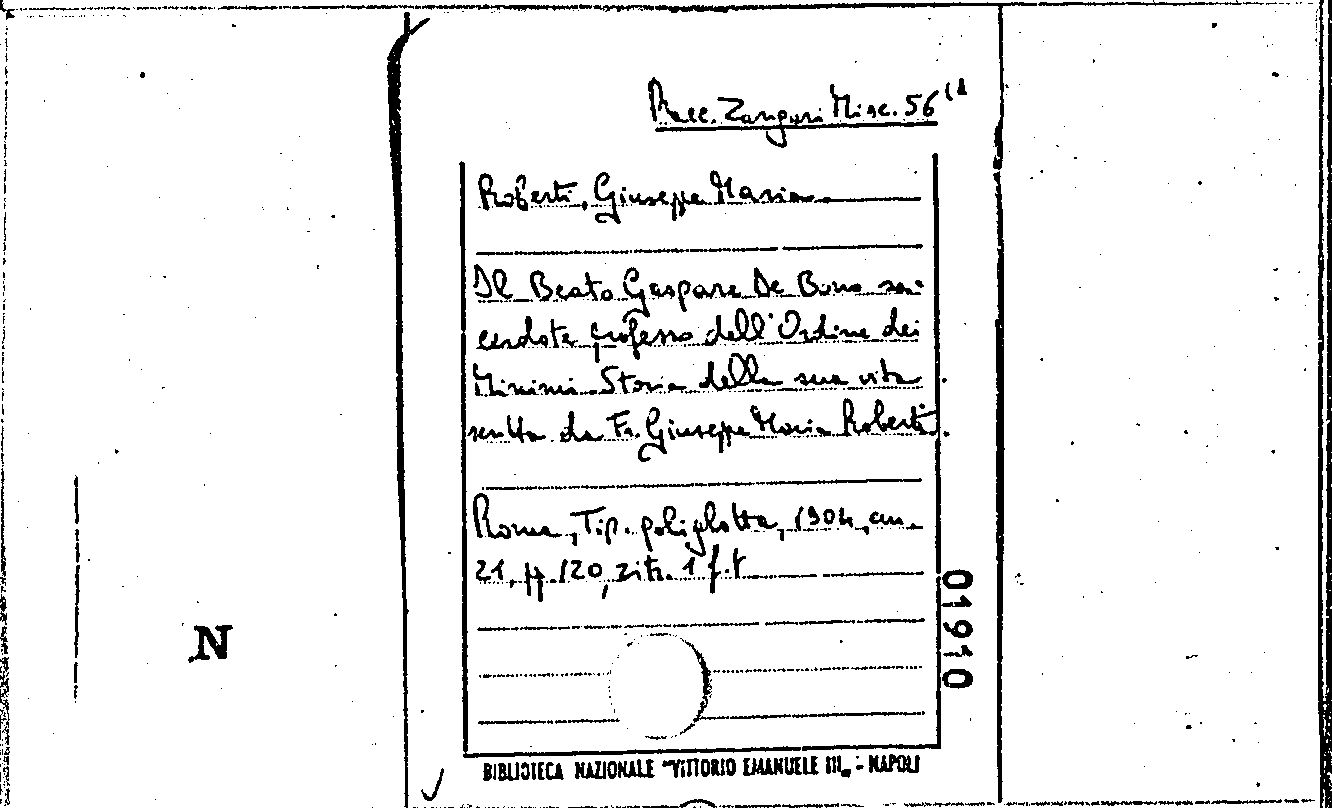 Racc. Zangari Misc. 56 (1
Roberti, Giuseppe Maria
Il Beato Gaspare De Bono sa-
cerdote professo dell'Ordine dei
Minimi. Storia della sua vita
scritta da Fr. Giuseppe Maria Roberti.
Roma, Tip. poliglotta, 1904, cm.
21, pp. 120, ritr. 1 f.t
01910
N
BIBLIOTECA NAZIONALE "VITTORIO EMANUELE III„ - NAPOLI